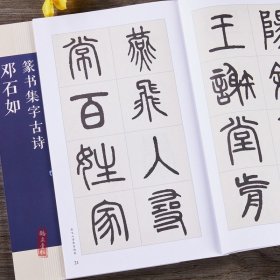 邓石如
篆书集字古诗
陽
王謝堂前
燕飛入尋
常百姓家
21